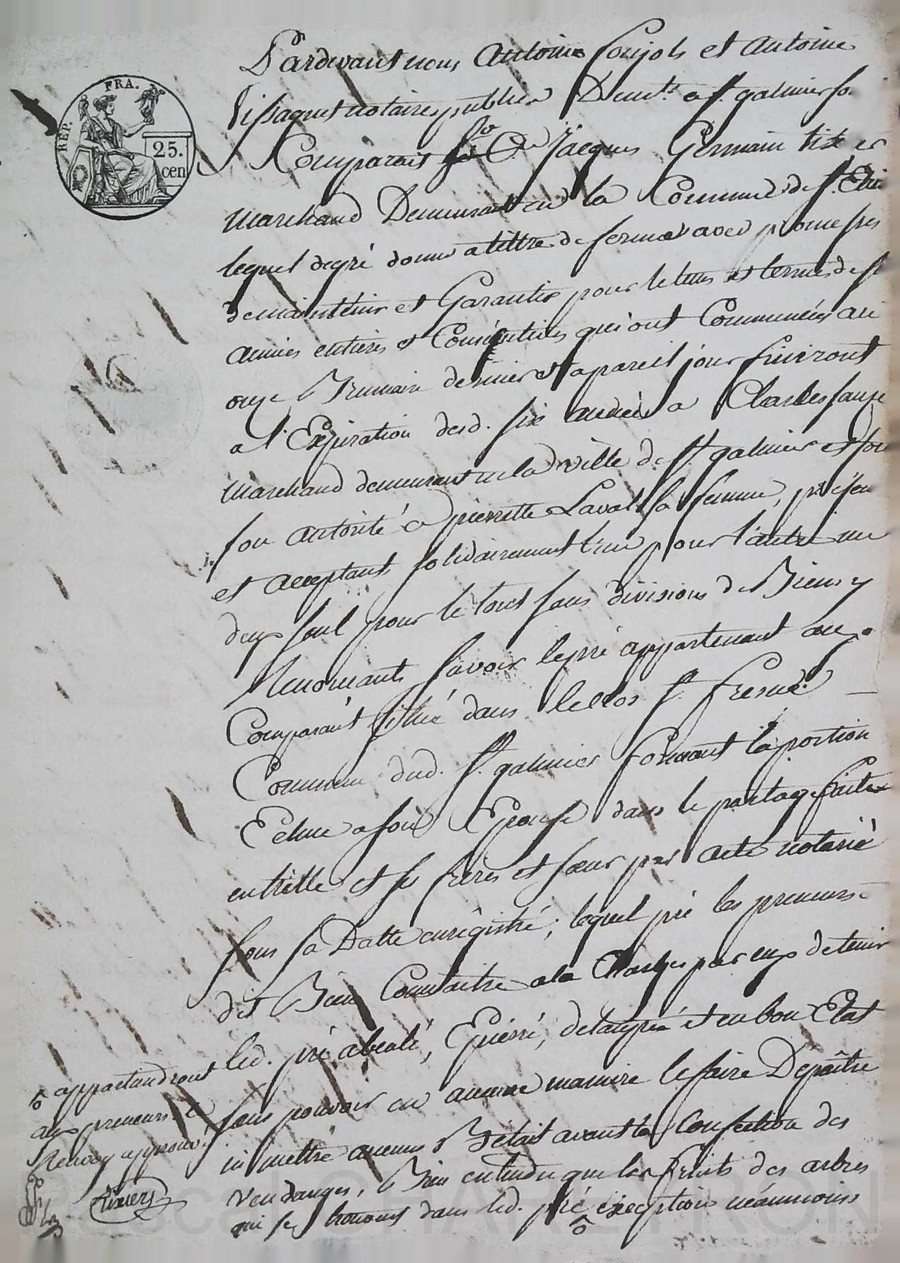 REP. FRA.
25.
cen
Pardevant nous Antoine Coujols et Antoine
notaires publics Demts. a St. galmier
Comparait Jacques Germain
Marchand Demeurant en la Commune de St.
lequel de gré donne a tittre de ferme avec promesse
de maintenir et Garantir pour le tems et terme de six
annees entieres et Consécutives qui ont Commencées au
onze Brumaire dernier et a pareil jour finiront
a l'Expiration desd. six années a Charles faure
Marchand demeurant en lad. ville de St. galmier et sous
son autorité a pierrette Laval sa femme, présen
et acceptants solidairement l'un pour l'autre un
deux seul pour le tout sans divisions de Biens y
Renonçants savoir le pré appartenant au
Comparant situé dans le clos St.
Commune dud. St. galmier formant la portion
Echue a son Epouse dans le partage faite
entr'elle et ses frères et sœur par acte notarié
sous sa Datte enregistré; lequel pré les preneurs
dit Bien Connaitre a la Charge par eux de tenir
led. pré Epierré, detaupé et en bon Etat
sans pouvoir en aucune maniere le faire Depaître
ni mettre aucuns Betail avant la Confection des
vendanges, Bien entendu que les fruits des arbres
qui se trouvent dans led. pré exception néanmoins
appartiendront
aux preneurs
Renvoy approuvé